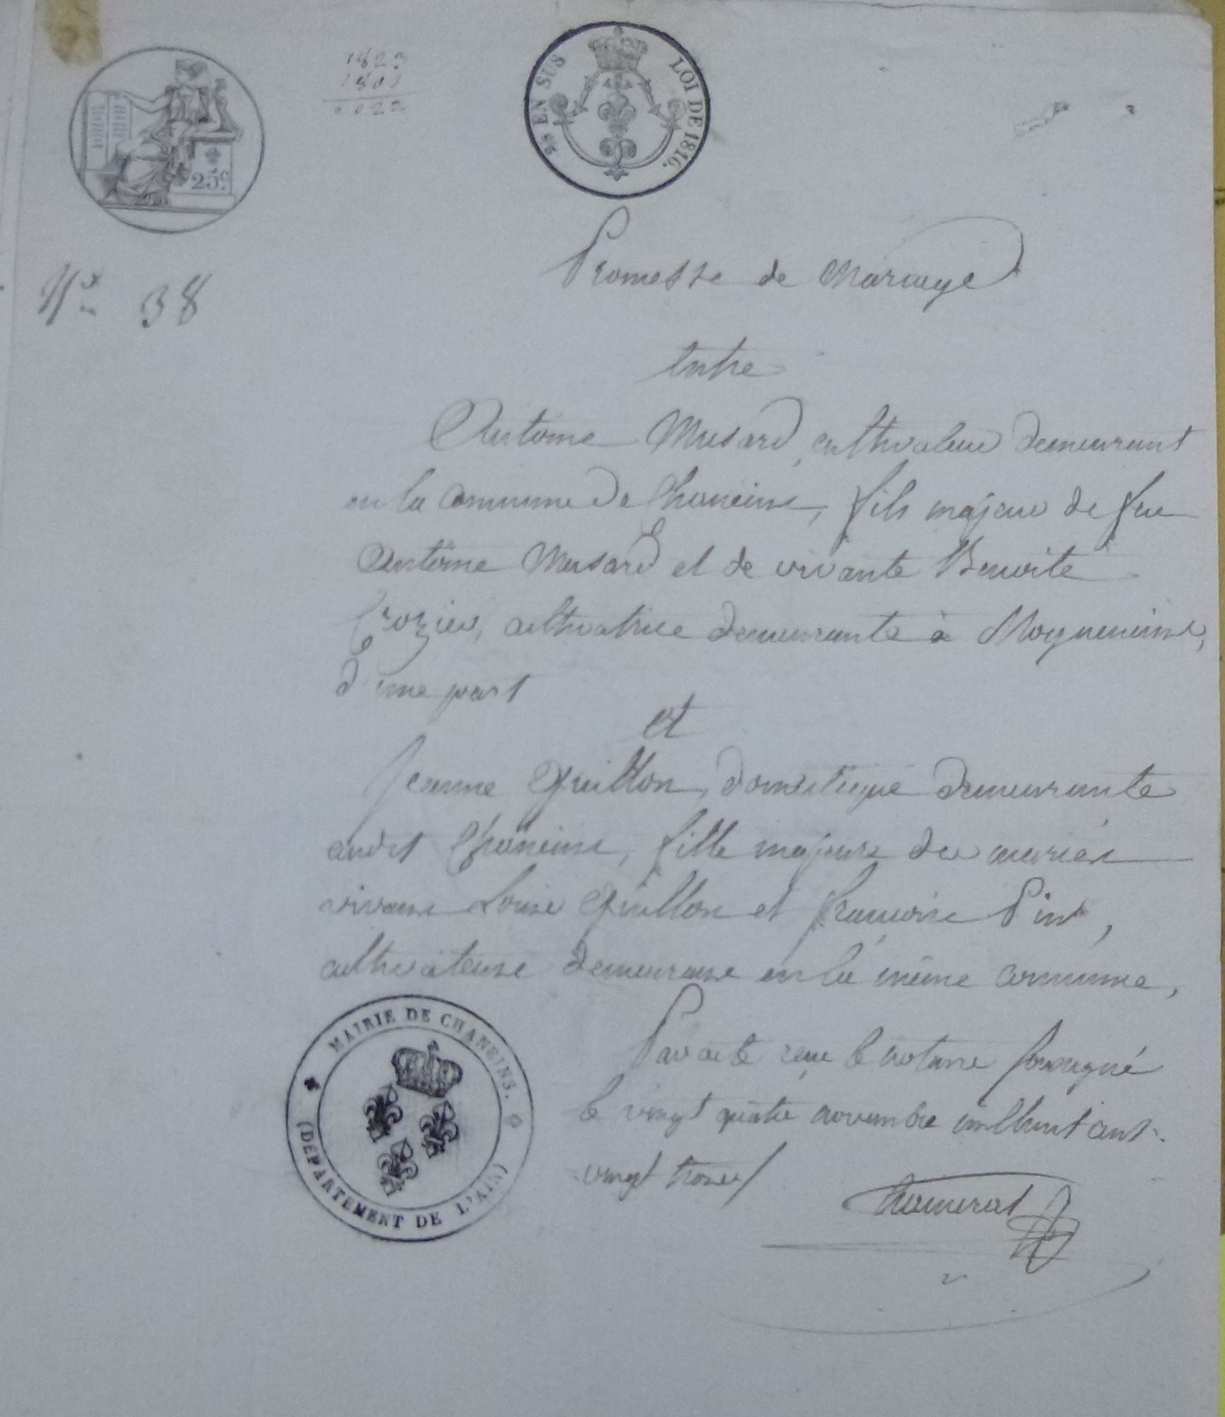 25 EN SUS
LOI DE 1816.
25 c
1823
1801
0022
No. 38
Promesse de Mariage
Entre
Antoine Musard, cultivateur demeurant
en la commune de Chaneins, fils majeur de feu
Antoine Musard et de vivante Benoite
Crozier, cultivatrice demeurante à Mogneneins,
d'une part
et
Jeanne Guillon, domestique demeurante
audit Chaneins, fille majeure des mariés
vivans Louis Guillon et Françoise Pin,
cultivateurs demeurans en la même commune,
Par acte reçu le notaire soussigné
le vingt quatre novembre mil huit cent
vingt trois
MAIRIE DE CHANEINS.
(DEPARTEMENT DE L'AIN)